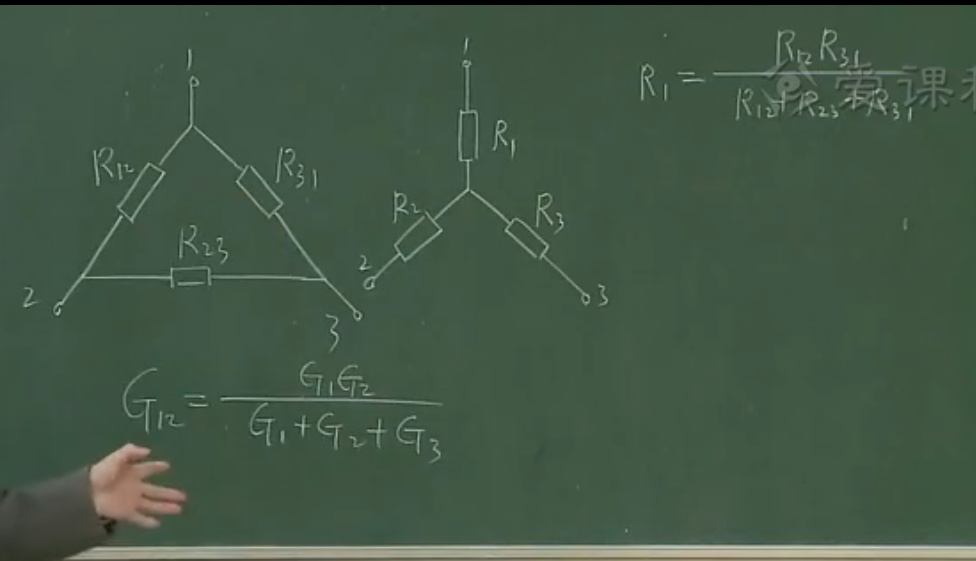 1
R12 R31
R23
2 3
1
R1
R2 R3
2 3
R1 = R12 R31 / R12 + R23 + R31
G12 = G1 G2 / G1 + G2 + G3
爱课